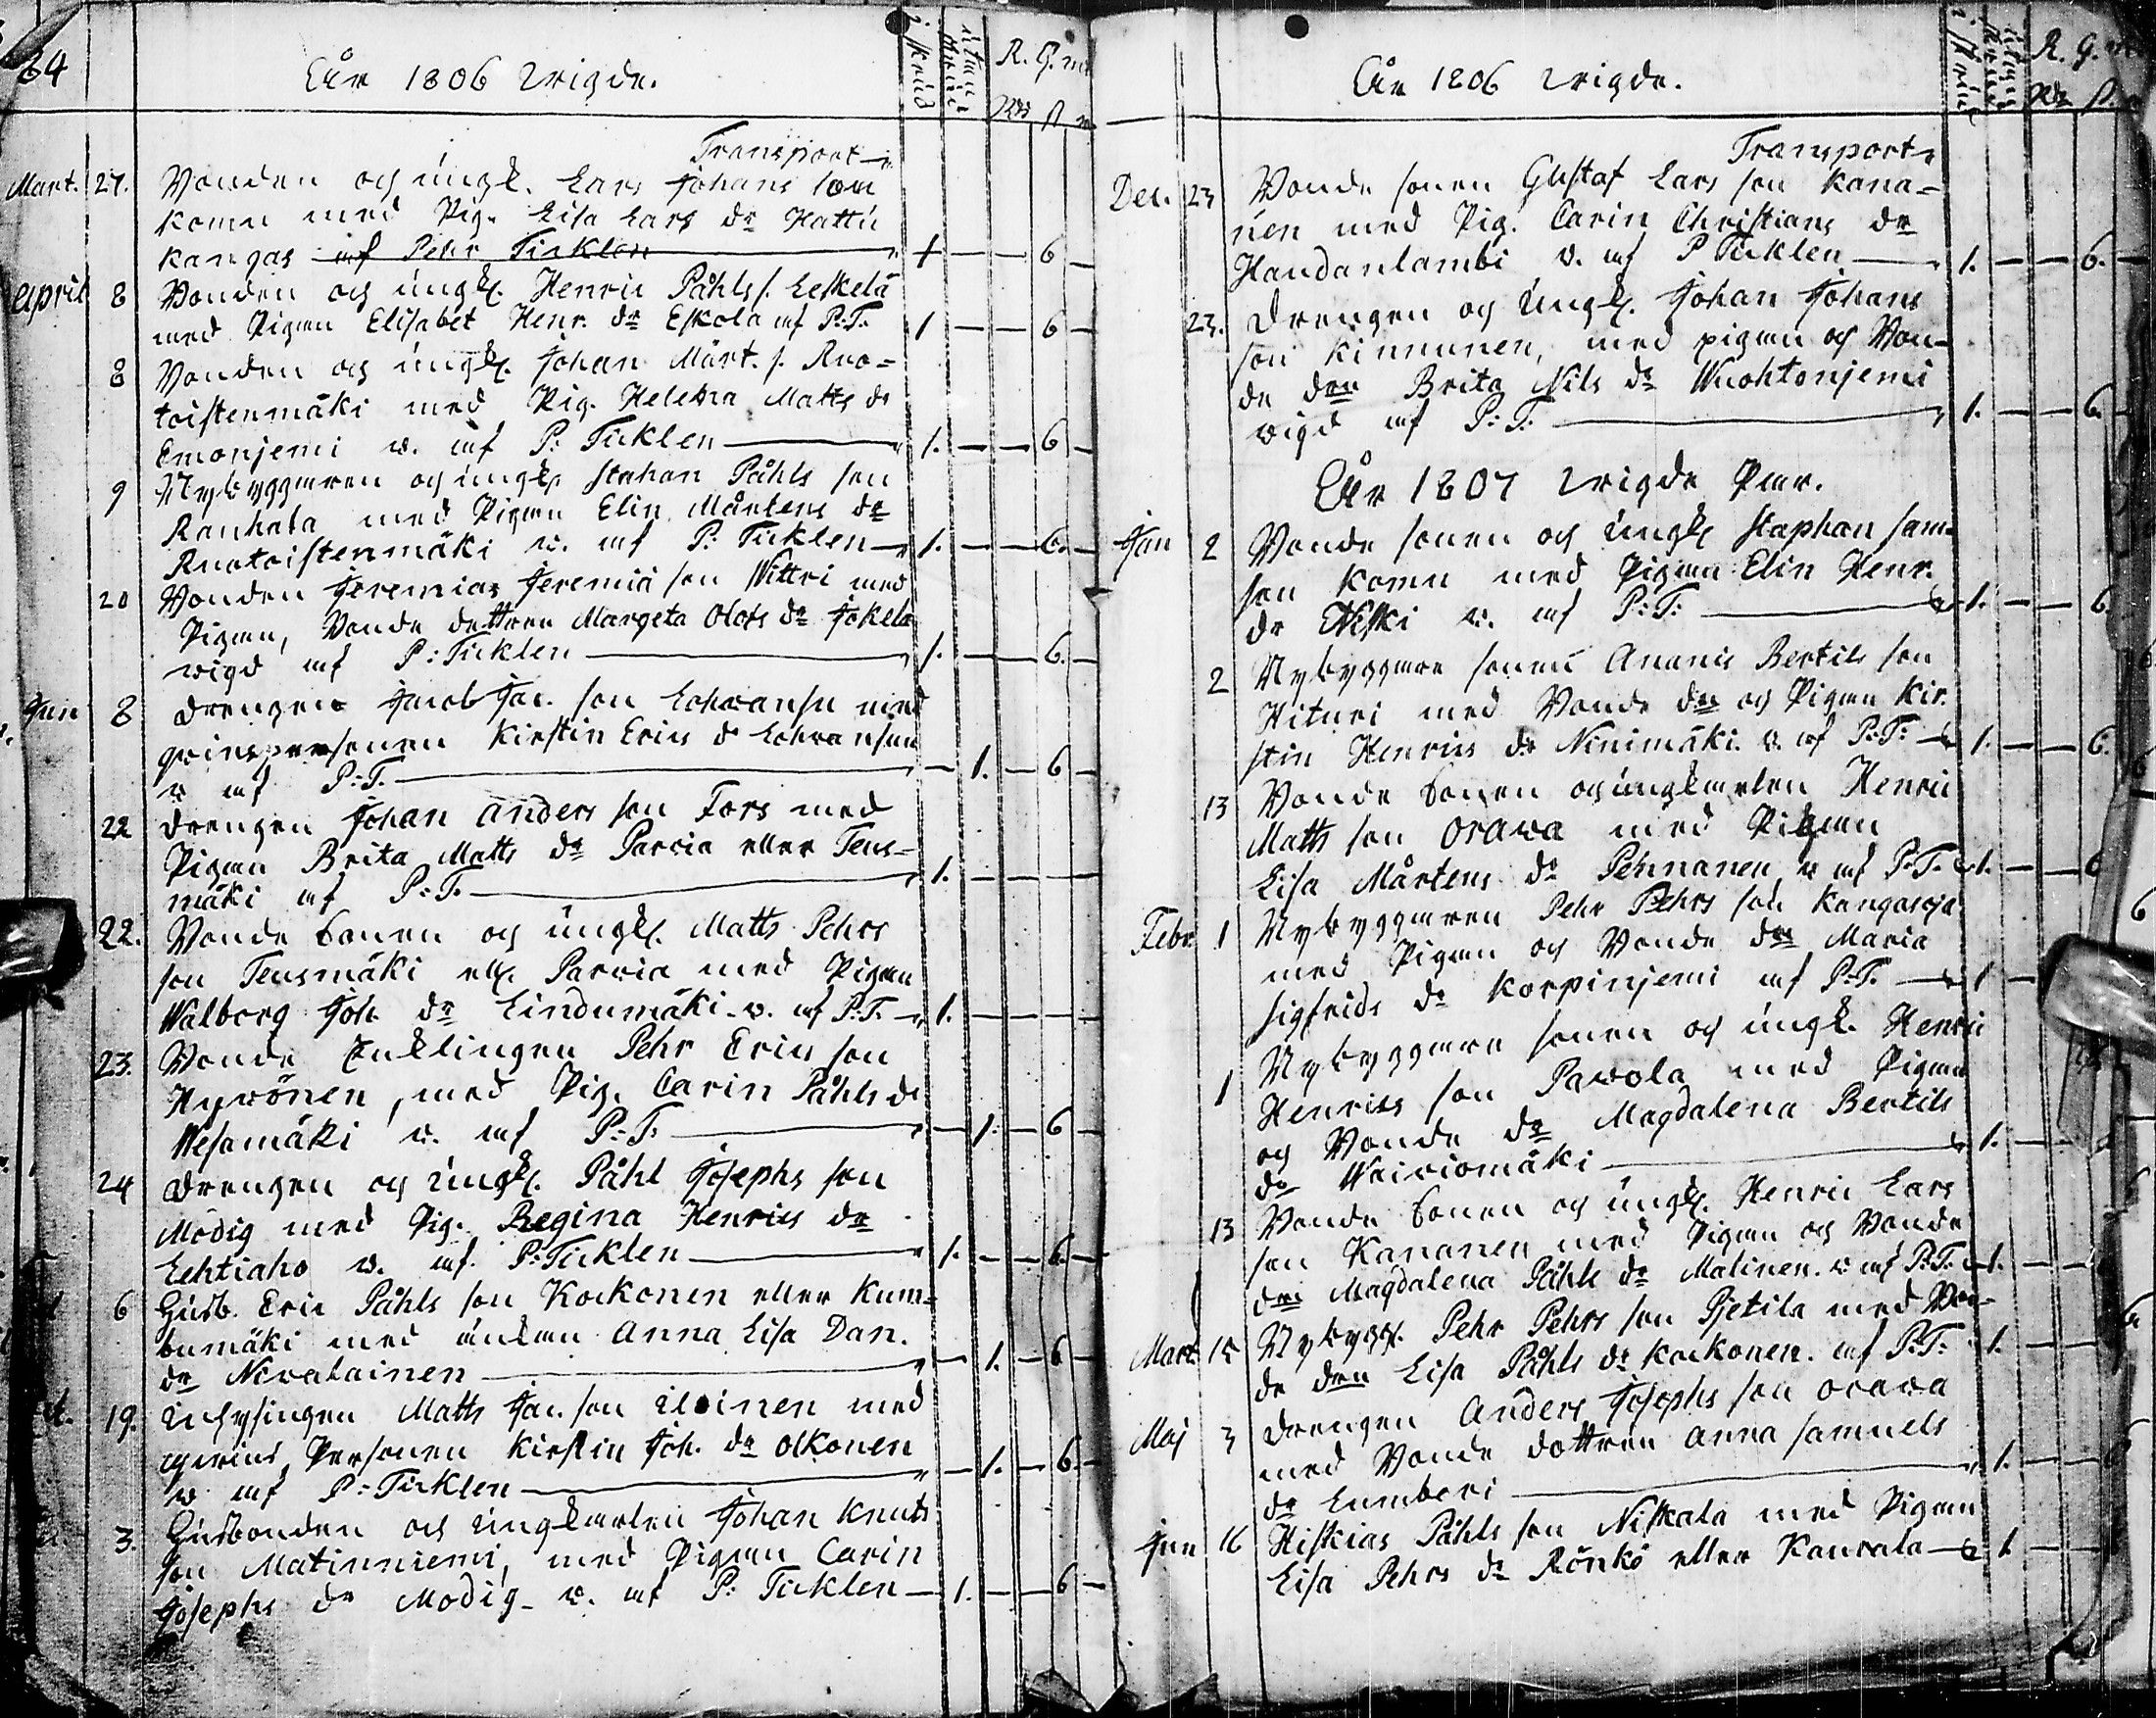 64
Åår 1806 Wigde.
i skrud
utan skrud
R. G. m
Rdr ß
Transport
Mart. 27. Bonden och ungk. Lars Johans son
Komu med Pig. Lisa Lars dr Hattu
kangas af Pehr Ticklen 1 — — 6 —
April 8 Bonden och ungk. Henric Påhls s. Leskelä
med Pigan Elisabet Henr. dr Eskola af P:T. 1 — — 6 —
8 Bonden och ungk. Johan Mårt. s. Ruo-
toistenmäki med Pig. Helena Matts dr
Emonjemi v. af P: Ticklen 1. — — 6 —
9 Nybyggaren och ungk. Stahan Påhls son
Rauhala med Pigan Elin Mårtens dr
Ruotoistenmäki v. af P: Ticklen 1. — — 6. —
20 Bonden Jeremias Jeremiæ son Wittri med
Pigan, Bonde dottren Margeta Olofs dr Jokela
wigd af P: Ticklen 1. — — 6. —
Jun 8 Drengen Jacob Jac. son Lohvansu med
qvinspersonen Kirstin Erics dr Lohvansuu
v af P:T. — 1. — 6 —
22 Drengen Johan Anders son Fors med
Pigan Brita Matts dr Parvia eller Teus-
mäki af P:T. 1. — — —
22. Bonde Sonen och ungk. Matts Pehrs
son Teusmäki ell. Parvia med Pigan
Walborg Joh. dr Lindumäki v. af P.T. 1. — — —
23. Bonde Enklingen Pehr Erics son
Hyvönen, med Pig. Carin Påhls dr
Wesamäki v. af P:T. — 1. — 6 —
24 Drengen och ungk. Påhl Josephs son
Modig med Pig. Regina Henrics dr
Lehtiaho v. af. P: Ticklen 1. — — 6 —
6 Husb. Eric Påhls son Kockonen eller Kum-
bumäki med änkan Anna Lisa Dan.
dr Nevalainen — 1. — 6 —
19. Inhysingen Matts Jac. son Iloinen med
qvins Personen Kirstin Joh. dr Olkonen
v af P: Ticklen — 1. — 6. —
3. Husbonden och ungkarlen Johan Knuts
son Matinniemi, med Pigan Carin
Josephs dr Modig v. af P: Ticklen — 1. — — 6 —
Åår 1806 Wigde.
i skrud
utan skrud
R. G. m
Rdr ß
Transport
Dec. 23 Bonde sonen Gustaf Lars son Kana-
nen med Pig. Carin Christians dr
Haudanlambi v. af P Ticklen 1. — — 6. —
23. Drengen och Ungk. Johan Johans
son Kinnunen, med pigan och Bon-
de dren Brita Nils dr Wuohtonjemi
wigd af P:T. 1. — — 6. —
Åår 1807 Wigde Par.
Jan 2 Bonde sonen och Ungk. Staphan Sam-
son Komu med Pigan Elin Henr.
dr Niski v. af P:T: 1. — — 6
2 Nybyggare sonen Ananis Bertils son
Hituri med Bonde dr och Pigan Kir-
stin Henrics dr Ninimäki v. af P:T: 1. — — 6.
13 Bonde Sonen och ungkarlen Henric
Matts son Orava med Pigan
Lisa Mårtens dr Pehnanen v af P.T. 1. — — 6
Febr 1 Nybyggaren Pehr Pehrs son Kangasoja
med Pigan och Bonde dr Maria
Sigfrids dr Korpinjemi af P:T. 1 —
1 Nybyggare sonen och ungk. Henric
Henrics son Pavola med Pigan
och Bonde dr Magdalena Bertils
dr Waiviomäki 1. —
13 Bonde Sonen och ungk. Henric Lars
son Kananen med Pigan och Bonde
dr Magdalena Påhls dr Malinen v af P.T. 1. —
Mart 15 Nybygg. Pehr Pehrs son Pjetila med Bon-
de dren Lisa Påhls dr Kockonen. af P.T. 1. —
Maj 3 Drengen Anders Josephs son Orava
med Bonde dottren Anna Samuels
dr Lumberi 1. —
Jun 16 Hiskias Påhls son Niskala med Pigan
Lisa Pehrs dr Rönkö eller Kaurala 1 —